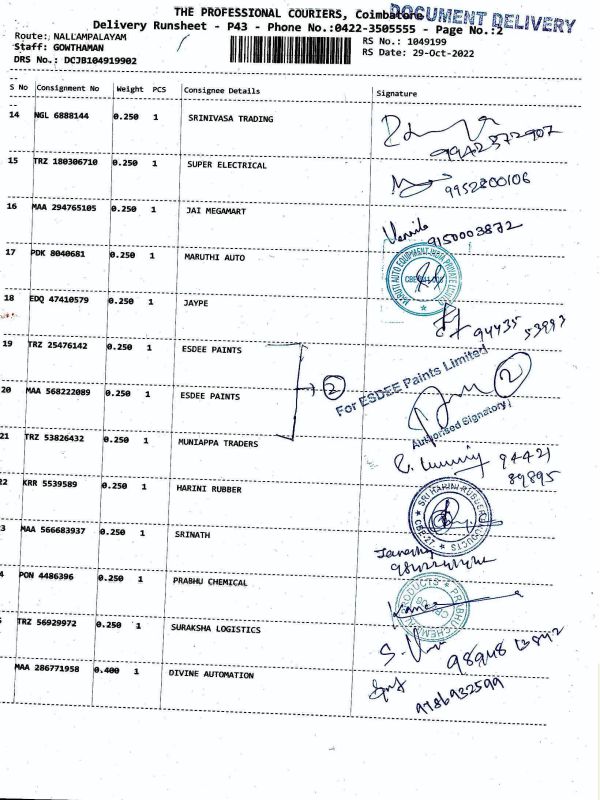 THE PROFESSIONAL COURIERS, Coimbatore
DOCUMENT DELIVERY
Delivery Runsheet - P43 - Phone No.:0422-3505555 - Page No.:2
Route: NALLAMPALAYAM
RS No.: 1049199
Staff: GOWTHAMAN
RS Date: 29-Oct-2022
DRS No.: DCJB104919902
S No Consignment No Weight PCS Consignee Details Signature
14 NGL 6888144 0.250 1 SRINIVASA TRADING
9942372907
15 TRZ 180306710 0.250 1 SUPER ELECTRICAL
9952800106
16 MAA 294765105 0.250 1 JAI MEGAMART
9150003872
17 PDK 8040681 0.250 1 MARUTHI AUTO
MARUTI AUTO EQUIPMENT INDIA PRIVATE LIMITED
18 EDQ 47410579 0.250 1 JAYPE
94435 53993
19 TRZ 25476142 0.250 1 ESDEE PAINTS
For ESDEE Paints Limited
20 MAA 568222089 0.250 1 ESDEE PAINTS
2
2
Authorised Signatory
21 TRZ 53826432 0.250 1 MUNIAPPA TRADERS
94421
89895
22 KRR 5539589 0.250 1 HARINI RUBBER
SRI HARINI RUBBER PRODUCTS
CBE-27
3 MAA 566683937 0.250 1 SRINATH
4 PON 4486396 0.250 1 PRABHU CHEMICAL
PRABHU CHEMICAL PRODUCTS
TRZ 56929972 0.250 1 SURAKSHA LOGISTICS
98948 13842
MAA 286771958 0.400 1 DIVINE AUTOMATION
9786932599